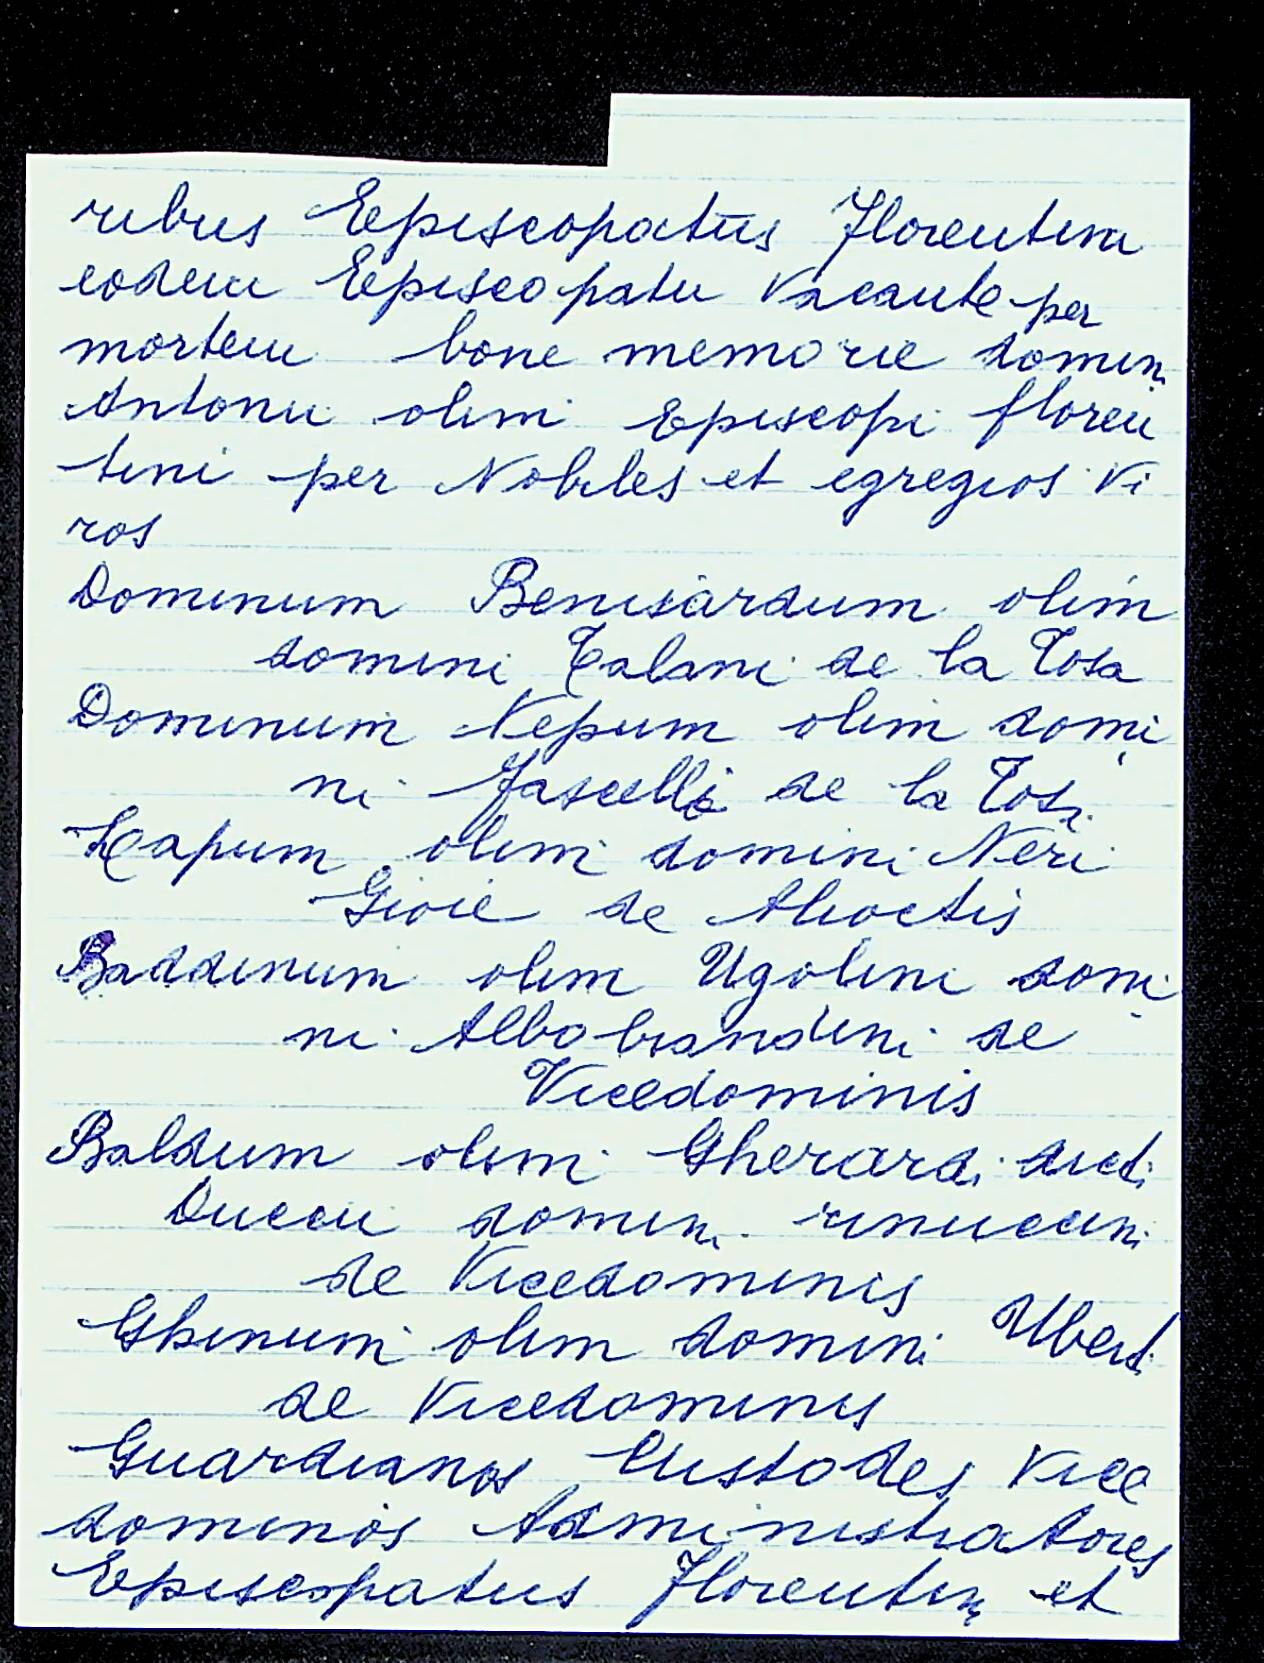 ribus Episcopatus Florentini
eodem Episcopatu Vacante per
mortem bone memorie domini
Antonii olim Episcopi floren
tini per Nobiles et egregios Vi
ros
Dominum Benciardum olim
domini Talani de la Tosa
Dominum Nepum olim domi
ni de la Tosa
Lapum olim domini Neri
Gioie de Alioctis
Baddinum olim Ugolini domi
ni Aldobrandini de
Vicedominis
Baldum olim Gherardi dicti
Duccii domini rinuccini
de Vicedominis
Ghinum olim domini Uberti
de Vicedominis
Guardianos Custodes Vice
dominos Administratores
Episcopatus Florentini et